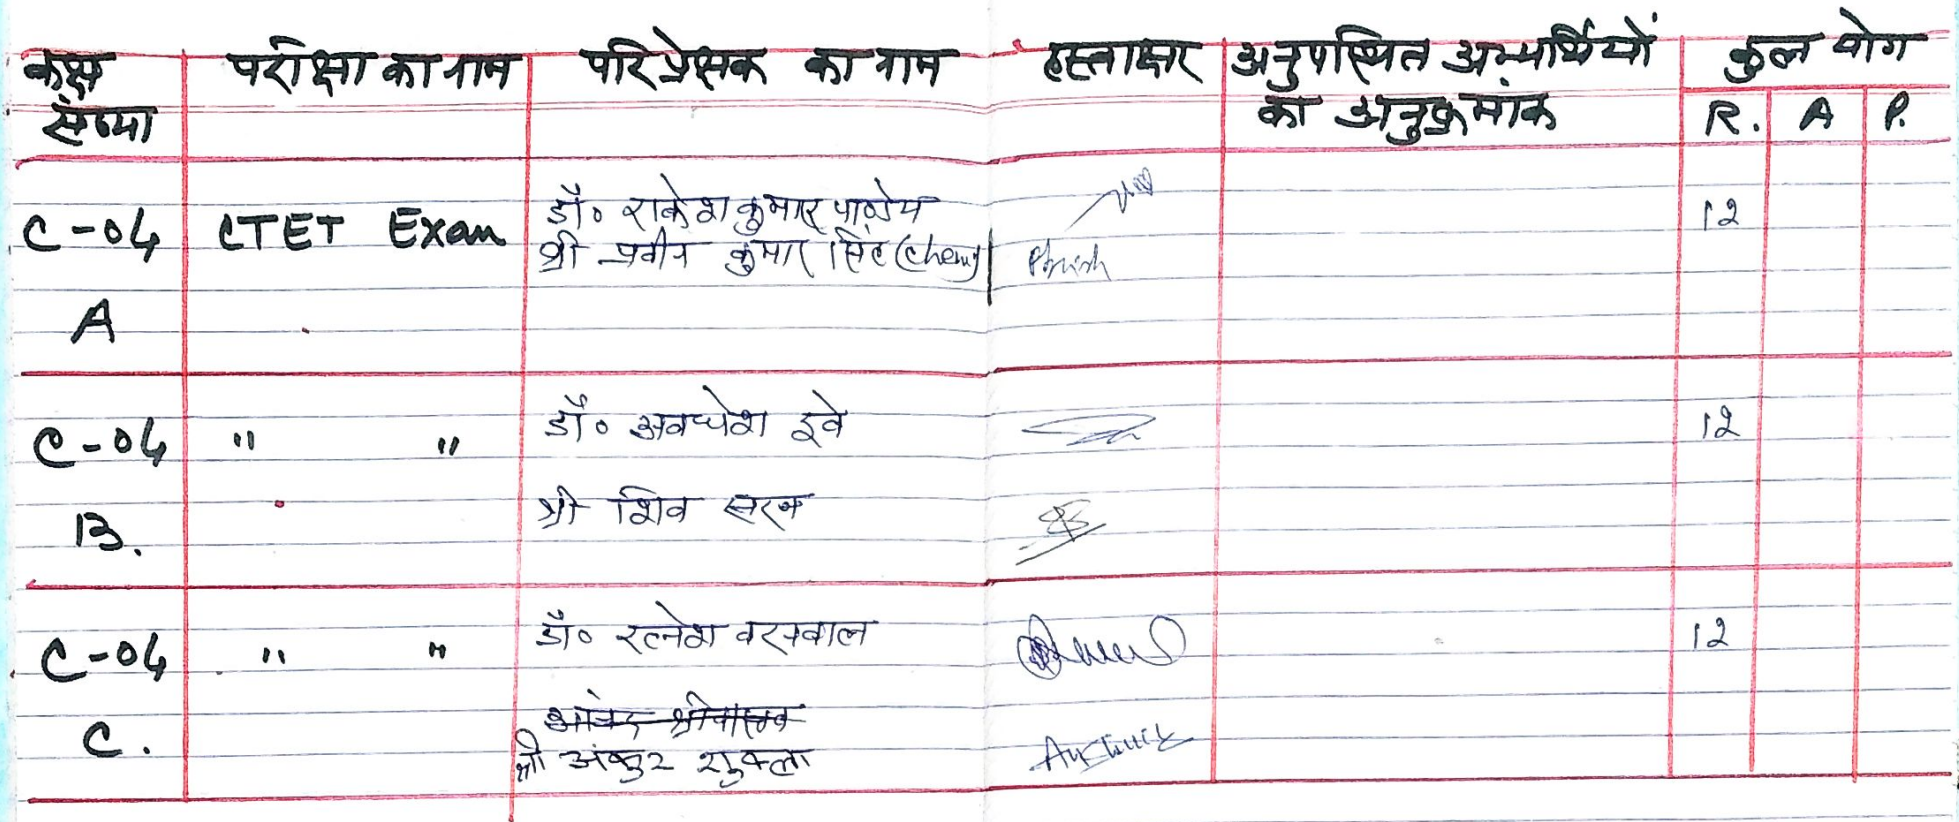 कक्ष संख्या | परीक्षा का नाम | परिप्रेक्षक का नाम | हस्ताक्षर | अनुपस्थित अभ्यर्थियों का अनुक्रमांक | कुल योग
R. | A | P.
C-04 | CTET Exam | डॉ० राकेश कुमार पाण्डेय | 12
श्री प्रवीन कुमार सिंह (chem)
A
C-04 | " " | डॉ० अवधेश दूवे | 12
श्री शिव सरन
B.
C-04 | " " | डॉ० रत्नेश बरनवाल | 12
श्रीवास्तव
C. | श्री अंकुर शुक्ला